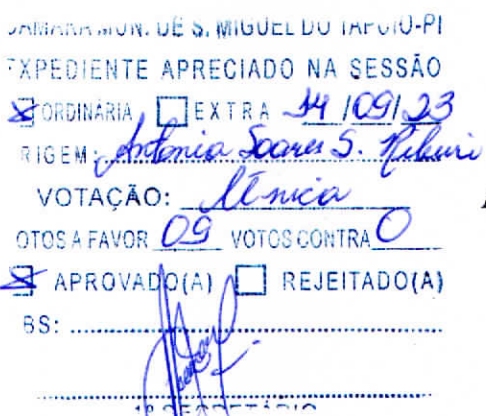 CAMARA MUN. DE S. MIGUEL DO TAPUIO-PI
EXPEDIENTE APRECIADO NA SESSÃO
☒ ORDINÁRIA ☐ EXTRA 14/09/23
RIGEM: Antonia Soares S.
VOTAÇÃO: Única
OTOS A FAVOR 09 VOTOS CONTRA 0
☒ APROVADO(A) ☐ REJEITADO(A)
BS:
1º SECRETÁRIO